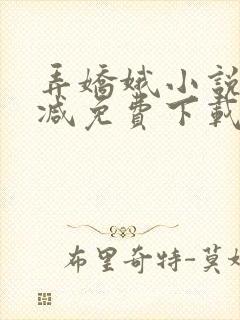 弄嬌娥小說
減免費下載
布里奇特-莫